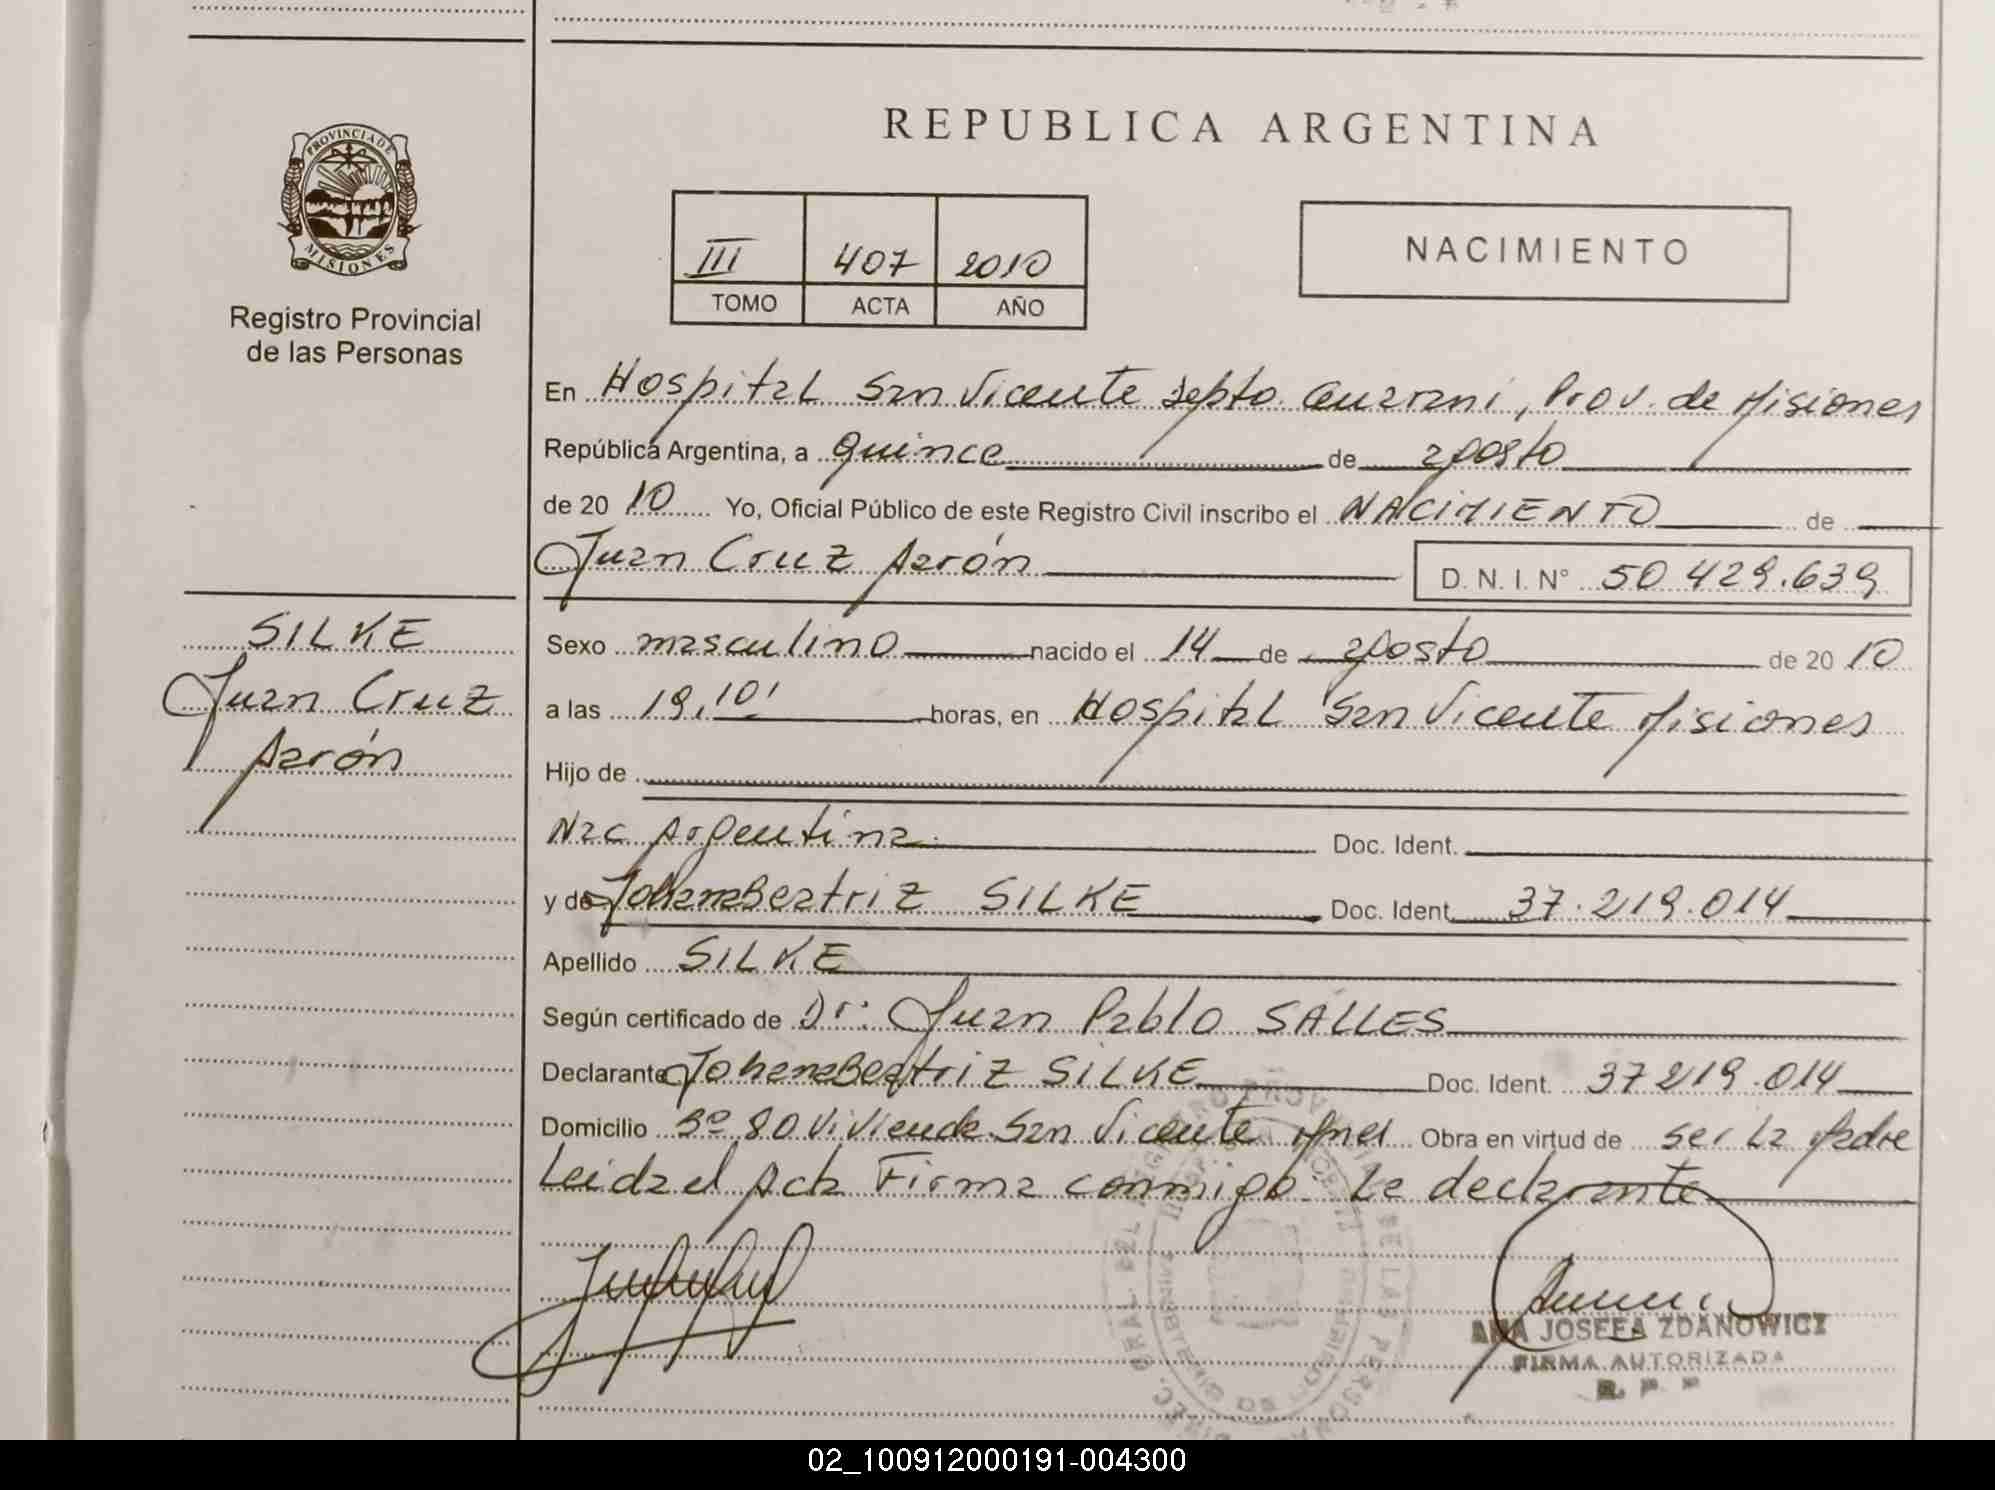 REPUBLICA ARGENTINA
PROVINCIA DE
MISIONES
Registro Provincial
de las Personas
III 407 2010
TOMO ACTA AÑO
NACIMIENTO
En Hospital San Vicente Depto. Guarani, Prov. de Misiones
República Argentina, a quince de agosto
de 20 10 Yo, Oficial Público de este Registro Civil inscribo el NACIMIENTO de
Juan Cruz Aarón D. N. I. N° 50 429.639
SILKE
Juan Cruz
Aarón
Sexo masculino nacido el 14 de agosto de 20 10
a las 19,10' horas, en Hospital San Vicente Misiones
Hijo de
Nac Argentina Doc. Ident.
y de Johana Beatriz SILKE Doc. Ident. 37.219.014
Apellido SILKE
Según certificado de Dr: Juan Pablo SALLES
Declarante Johana Beatriz SILKE Doc. Ident. 37 219.014
Domicilio Bº 80 Vivienda San Vicente Mnes Obra en virtud de ser la Madre
Leida el Acta Firma conmigo: La declarante
ANA JOSEFA ZDANOWICZ
FIRMA AUTORIZADA
02_100912000191-004300